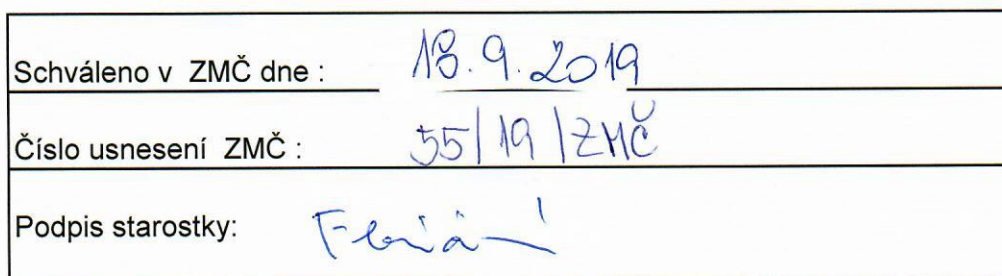 Schváleno v ZMČ dne : 18.9.2019
Číslo usnesení ZMČ : 55/19/ZMČ
Podpis starostky: